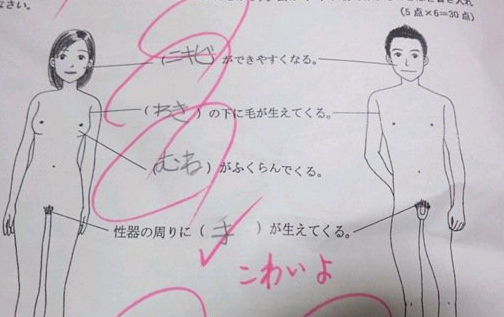 なさい。
(5点×6=30点)
(ニキビ)ができやすくなる。
(わき)の下に毛が生えてくる。
(むね)がふくらんでくる。
性器の周りに(手)が生えてくる。
こわいよ